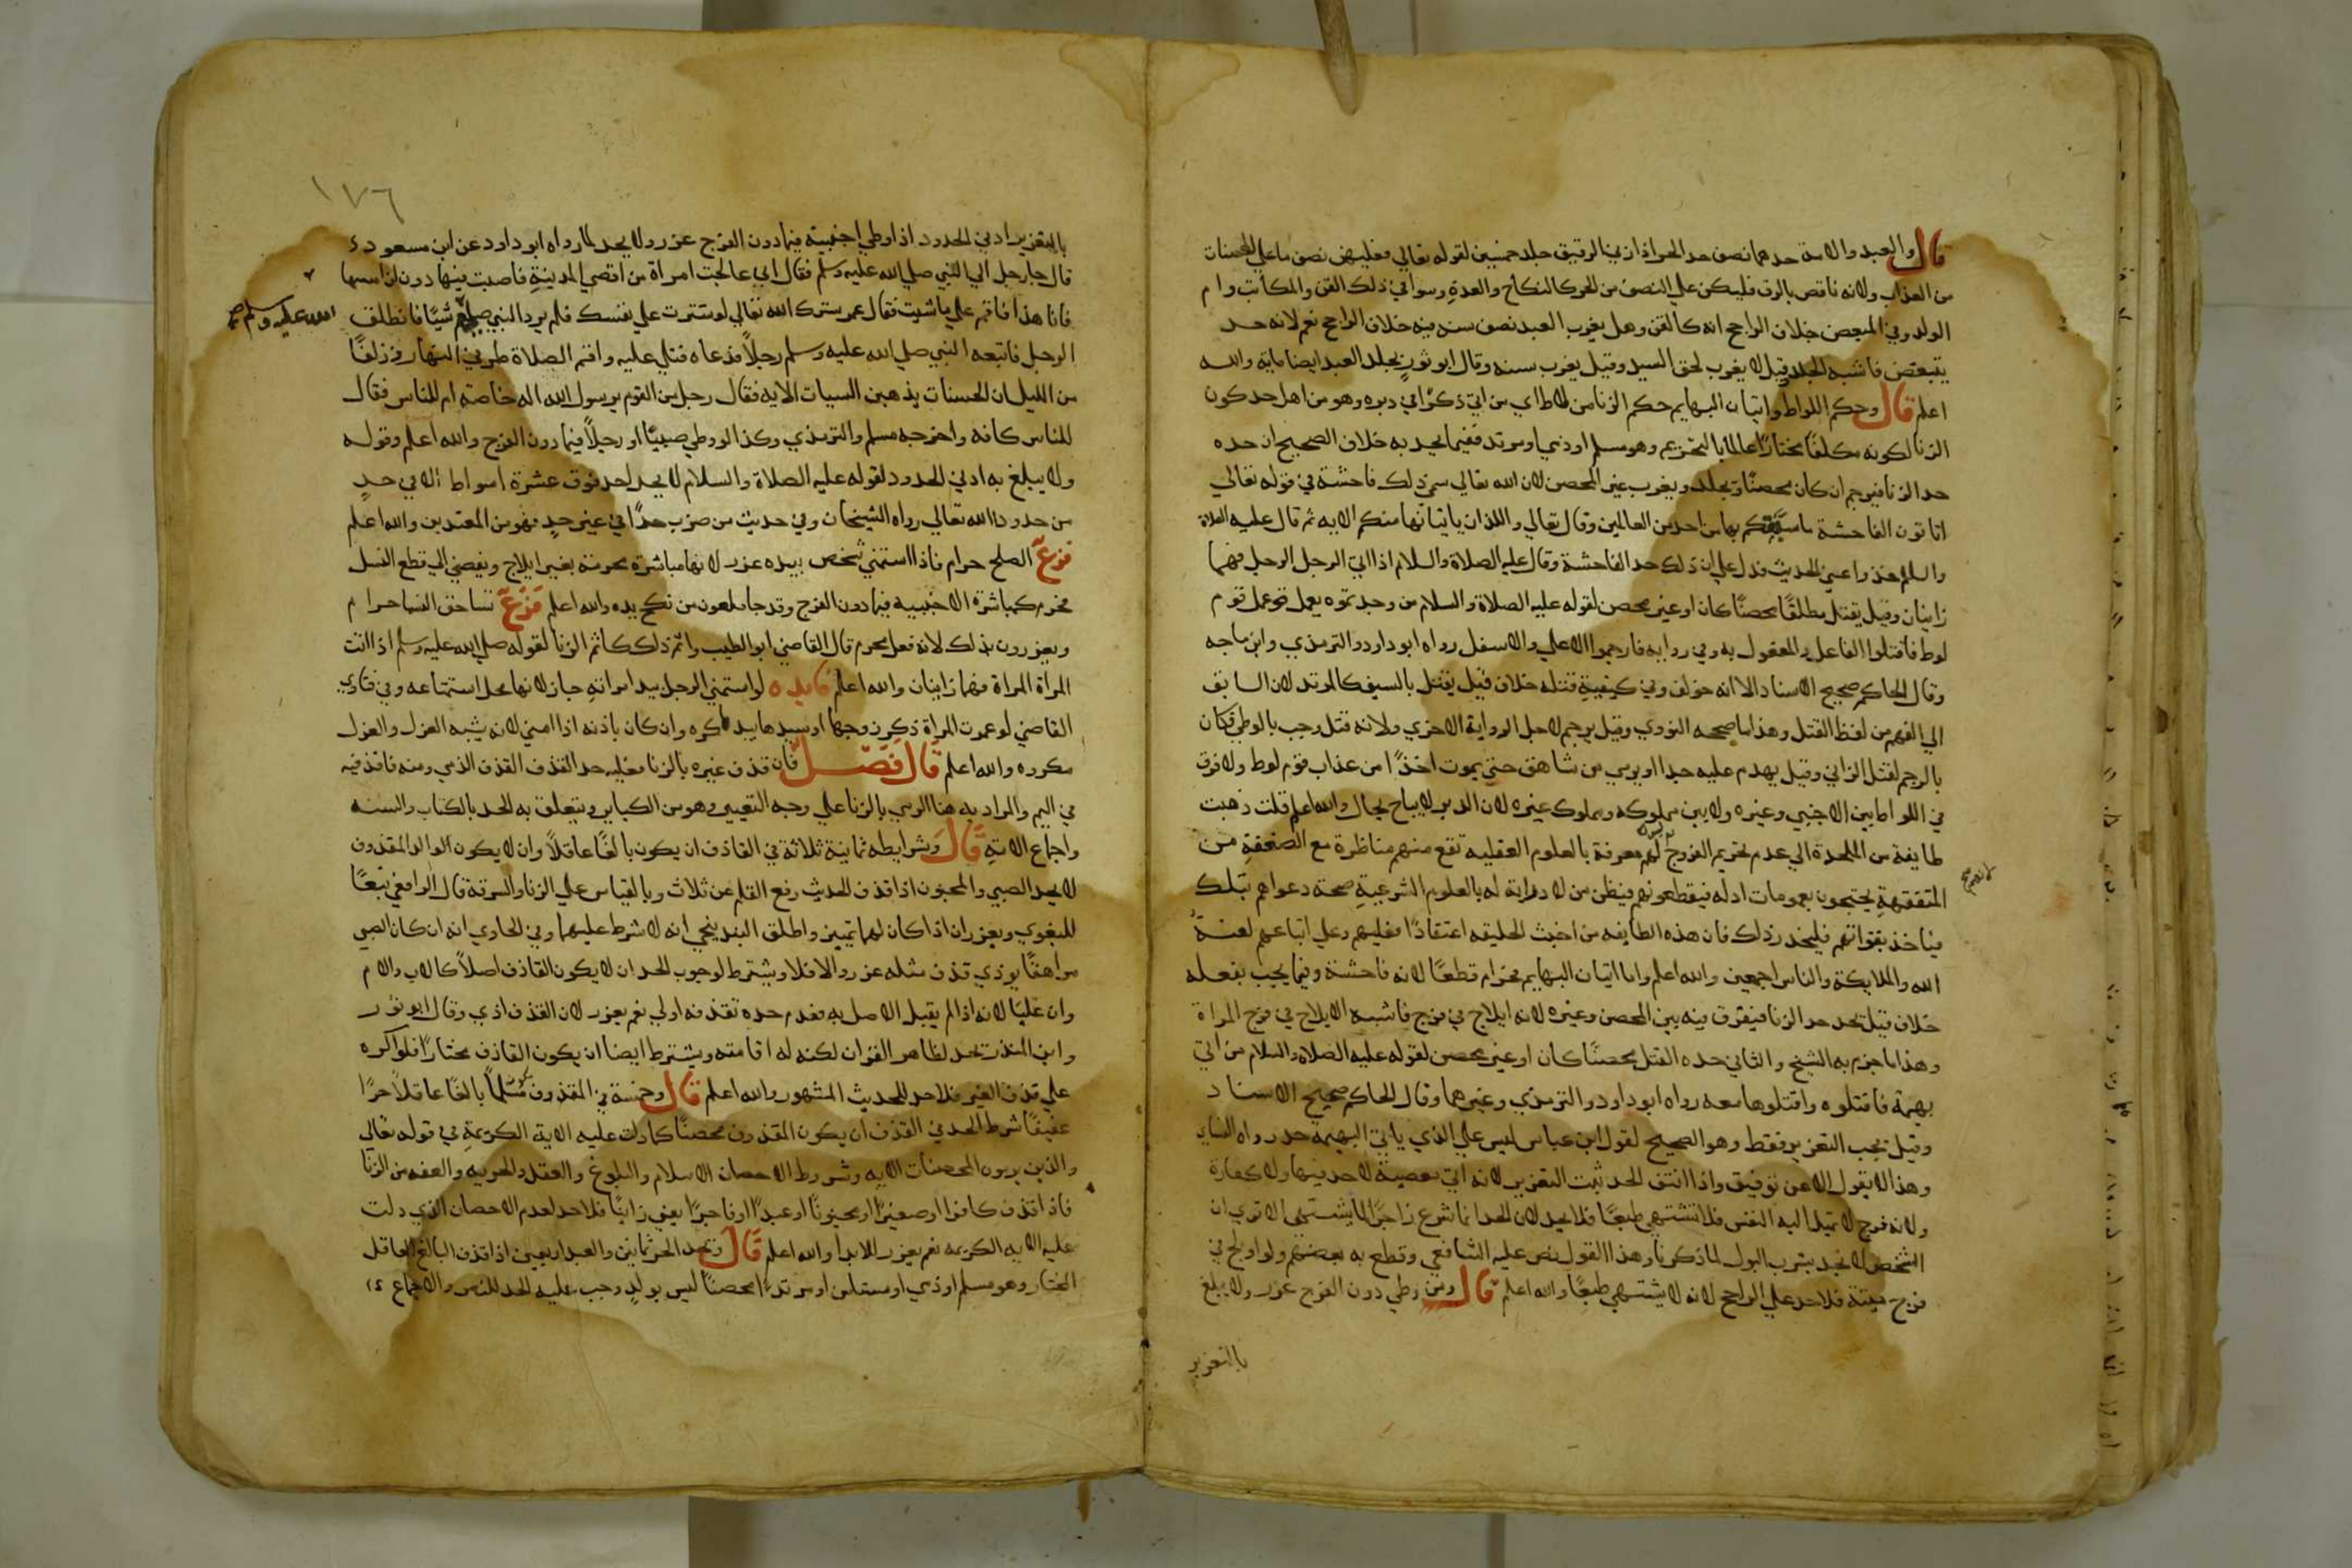 قال والعبد والامة حدهما نصف حد الحر اذا زني الرقيق جلد خمسين لقوله تعالي فعليهن نصف ما علي المحصنات
من العذاب ولانه ناقص بالرق فليكن علي النصف من الحر كالنكاح والعدة وسوا في ذلك القن والمكاتب وام
الولد وفي المبعض خلاف الراجح انه كالقن وهل يغرب العبد نصف سنة فيه خلاف الراجح نعم لانه حد
يتبعض فاشبه الجلد وقيل لا يغرب لحق السيد وقيل يغرب سنه وقال ابو ثور يجلد العبد ايضا ماية والله
اعلم قال وحكم اللواط واتيان البهايم حكم الزنا من لاط اي من اتي ذكرًا في دبره وهو من اهل حد كون
الزنا لكونه مكلفًا مختارًا عالمًا بالتحريم وهو مسلم او ذمي او مرتد ففيما يحد به خلاف الصحيح ان حده
حد الزنا فيرجم ان كان محصنًا ويجلد ويغرب غير المحصن لان الله تعالي سمي ذلك فاحشة في قوله تعالي
اتاتون الفاحشة ما سبقكم بها من احد من العالمين وقال تعالي واللذان ياتيانها منكم الايه ثم قال عليه الصلاة
والسلم خذوا عني الحديث فدل علي ان ذلك حد الفاحشة وقال عليه الصلاة والسلام اذا اتي الرجل الرجل فهما
زانيان وقيل يقتل مطلقًا محصنًا كان او غير محصن لقوله عليه الصلاة والسلام من وجدتموه يعمل عمل قوم
لوط فاقتلوا الفاعل والمفعول به وفي روايه فارجموا الاعلي والاسفل رواه ابو داود والترمذي وابن ماجه
وقال الحاكم صحيح الاسناد الا انه خولف وفي كيفية قتله خلاف قيل يقتل بالسيف كالمرتد لان السابق
الي الفهم من لفظ القتل وهذا ما صححه النووي وقيل يرجم لاجل الرواية الاخري ولانه قتل وجب بالوطي فكان
بالرجم لقتل الزاني وقيل يهدم عليه جدار او يرمي من شاهق حتي يموت اخذًا من عذاب قوم لوط ولا فرق
في اللواط بين الاجنبي وغيره ولا بين مملوكه ومملوك غيره لان الدبر لا يباح بحال والله اعلم قلت ذهبت
طايفة من الملحدة الي عدم تحريم الفروج لهم معرفة بالعلوم العقليه تقع منهم مناظرة مع الضعفة من
المتفقهة يحتجون بعمومات ادله فيقطعونهم فيظن من لا دراية له بالعلوم الشرعية صحة دعواهم بتلك
فياخذ بقولهم فليحذر ذلك فان هذه الطايفه من اخبث الخليقه اعتقادًا فعليهم وعلي اتباعهم لعنة
الله والملايكة والناس اجمعين والله اعلم واما اتيان البهايم فحرام قطعًا لانه فاحشة وفيما يجب بفعله
خلاف قيل يحد حد الزنا فيفرق فيه بين المحصن وغيره لانه ايلاج في فرج فاشبه الايلاج في فرج المراة
وهذا ما جزم به الشيخ والثاني حده القتل محصنًا كان او غير محصن لقوله عليه الصلاه والسلام من اتي
بهيمة فاقتلوه واقتلوها معه رواه ابو داود والترمذي وغيرهما وقال الحاكم صحيح الاسناد
وقيل يجب التعزير فقط وهو الصحيح لقول ابن عباس ليس علي الذي ياتي البهيمة حد رواه النساي
وهذا لا يقول الا عن توقيف واذا انتفي الحد ثبت التعزير لانه اتي معصية لا حد فيها ولا كفارة
ولانه فرج لا تميل اليه النفس فلا تشتهي طبعًا فلا يحد لان الحد انما شرع زاجرًا لما يشتهي الا تري ان
الشخص لا يحد بشرب البول لما ذكرنا وهذا القول نص عليه الشافعي وقطع به بعضهم ولو اولج في
فرج ميتة فلا حد علي الراجح لانه لا يشتهي طبعًا والله اعلم قال ومن وطي دون الفرج عزر ولا يبلغ
بالتعزير
١٧٦
بالتعزير ادني الحدود اذا وطي اجنبية فيما دون الفرج عزر ولا يحد لما رواه ابو داود عن ابن مسعود
قال جا رجل الي النبي صلي الله عليه وسلم فقال اني عالجت امراة من اقصي المدينة فاصبت منها دون ان امسها
فانا هذا فاقم علي ما شيت فقال عمر سترك الله تعالي لو سترت علي نفسك فلم يرد النبي صلي شيًا فانطلق
الله عليه وسلم صح
الرجل فاتبعه النبي صلي الله عليه وسلم رجلًا فدعاه فتلي عليه واقم الصلاة طرفي النهار وزلفًا
من الليل ان الحسنات يذهبن السيات الايه فقال رجل من القوم يرسول الله اله خاصة ام للناس فقال
للناس كافه واخرجه مسلم والترمذي وكذا لو وطي صبيًا او رجلًا فيما دون الفرج والله اعلم وقوله
ولا يبلغ به ادني الحدود لقوله عليه الصلاة والسلام لا يجلد احد فوق عشرة اسواط الا في حدٍ
من حدود الله تعالي رواه الشيخان وفي حديث من ضرب حدًا في غير حدٍ فهو من المعتدين والله اعلم
فرع الصلح حرام فاذا استمني شخص بيده عزر لانها مباشرة محرمة بغير ايلاج ويفضي الي قطع النسل
فحرم كمباشرة الاجنبية فيما دون الفرج وقد جا ملعون من نكح يده والله اعلم فرع تساحق النسا حرام
ويعزرون بذلك لانه فعل محرم قال القاضي ابو الطيب واثم ذلك كاثم الزنا لقوله صلي الله عليه وسلم اذا اتت
المراة المراة فهما زانيتان والله اعلم فايده لو استمني الرجل بيد امراته جاز لانها محل استمتاعه وفي فتاوي
القاضي لو غمزت المراة ذكر زوجها او سيدها بيدها كره وان كان باذنه اذا امني لانه يشبه العزل والعزل
مكروه والله اعلم قال فصل فان قذف غيره بالزنا فعليه حد القذف القذف الرمي ومنه فاقذفيه
في اليم والمراد به هنا الرمي بالزنا علي وجه التعيير وهو من الكباير ويتعلق به الحد بالكتاب والسنه
واجماع الامة قال وشرايطه ثمانية ثلاثة في القاذف ان يكون بالغًا عاقلًا وان لا يكون الوالد المقذوف
لا يحد الصبي والمجنون اذا قذف لحديث رفع القلم عن ثلاث وبالقياس علي الزنا والسرقة قال الرافعي تبعًا
للبغوي ويعزران اذا كان لهما تمييز واطلق البندنيجي انه لا شرط عليهما وفي الحاوي انه ان كان الصبي
مراهقًا يوذي قذف مثله عزر والا فلا ويشترط لوجوب الحد ان لا يكون القاذف اصلًا كالاب والام
وان عليا لانه اذا لم يقتل الاصل به فعدم حده بقذفه اولي نعم يعزر لان القذف اذي وقال ابو ثور
وابن المنذر يحد لظاهر القران لكنه له اقامته ويشترط ايضا ان يكون القاذف مختارًا فلو اكره
علي قذف الغير فلا حد للحديث المشهور والله اعلم قال وخمسة في المقذوف مسلمًا بالغًا عاقلًا حرًا
عفيفًا شرط الحد في القذف ان يكون المقذوف محصنًا كما دلت عليه الاية الكريمة في قوله تعالي
والذين يرمون المحصنات الايه وشروط الاحصان الاسلام والبلوغ والعقل والحريه والعفه من الزنا
فاذا قذف كافرًا او صغيرًا او مجنونًا او عبدًا او فاجرًا يعني زانيًا فلا حد لعدم الاحصان الذي دلت
عليه الايه الكريمه نعم يعزر للايذا والله اعلم قال ويحد الحر ثمانين والعبد اربعين اذا قذف البالغ العاقل
المختار وهو مسلم او ذمي او مستامن او مرتد محصنًا ليس بولدٍ وجب عليه الحد للنص والاجماع